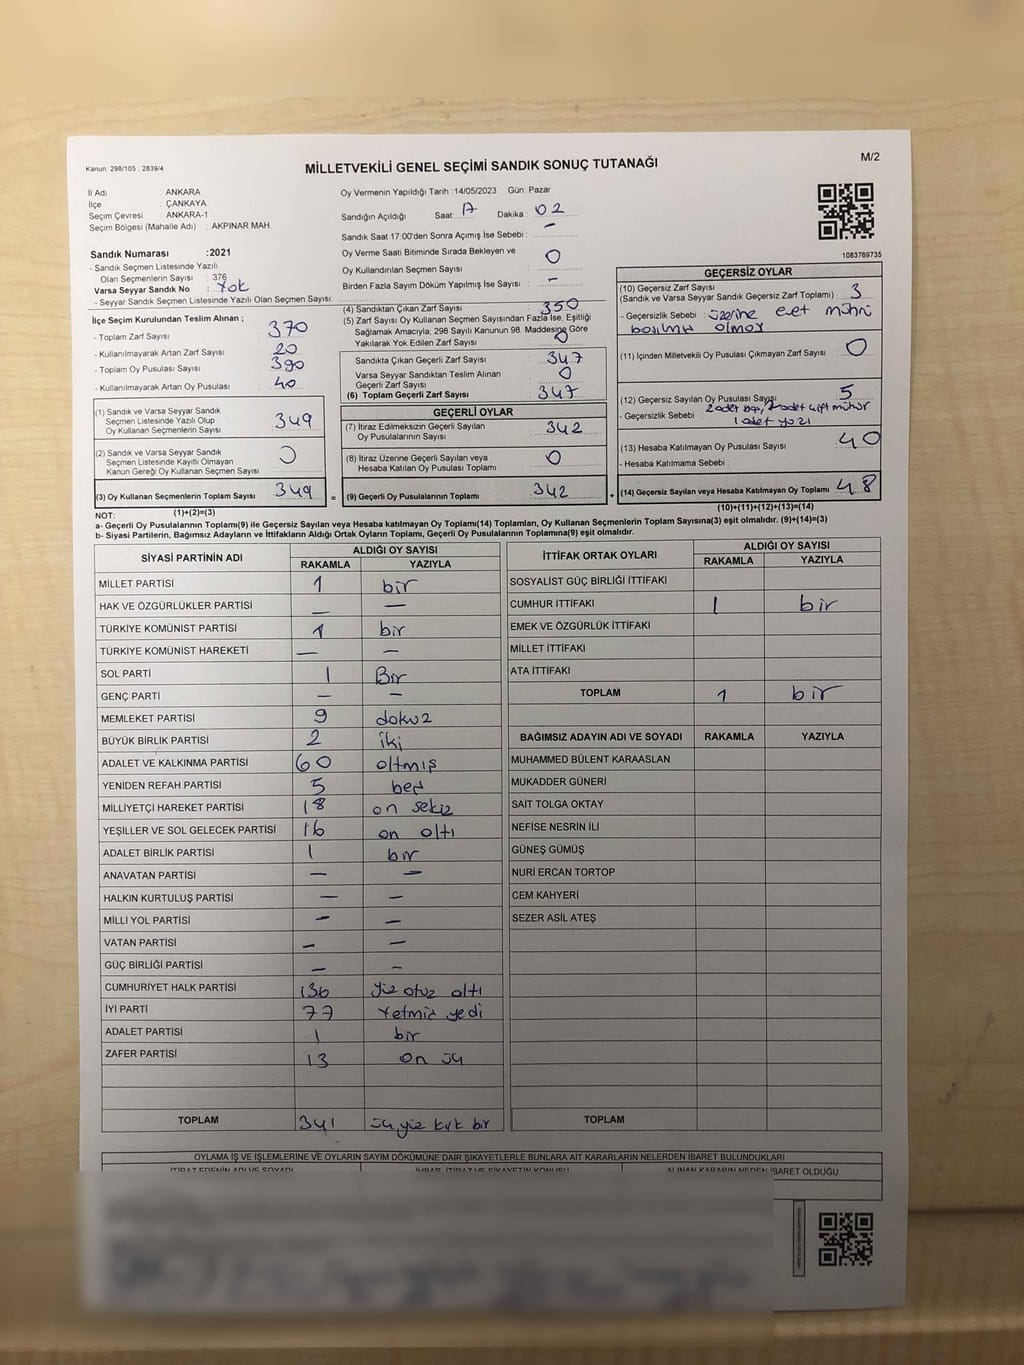 Kanun: 298/105 , 2839/4
MİLLETVEKİLİ GENEL SEÇİMİ SANDIK SONUÇ TUTANAĞI
M/2
İl Adı : ANKARA
İlçe : ÇANKAYA
Seçim Çevresi : ANKARA-1
Seçim Bölgesi (Mahalle Adı) : AKPINAR MAH.
Sandık Numarası :2021
- Sandık Seçmen Listesinde Yazılı
Olan Seçmenlerin Sayısı : 376
Varsa Seyyar Sandık No : Yok
- Seyyar Sandık Seçmen Listesinde Yazılı Olan Seçmen Sayısı:
Oy Vermenin Yapıldığı Tarih :14/05/2023 Gün: Pazar
Sandığın Açıldığı Saat: 17 Dakika : 02
Sandık Saat 17:00'den Sonra Açımış İse Sebebi : —
Oy Verme Saati Bitiminde Sırada Bekleyen ve
Oy Kullandırılan Seçmen Sayısı : 0
Birden Fazla Sayım Döküm Yapılmış İse Sayısı : –
1083769735
İlçe Seçim Kurulundan Teslim Alınan ;
- Toplam Zarf Sayısı : 370
- Kullanılmayarak Artan Zarf Sayısı : 20
- Toplam Oy Pusulası Sayısı : 390
- Kullanılmayarak Artan Oy Pusulası : 40
(1) Sandık ve Varsa Seyyar Sandık
Seçmen Listesinde Yazılı Olup
Oy Kullanan Seçmenlerin Sayısı : 349
(2) Sandık ve Varsa Seyyar Sandık
Seçmen Listesinde Kayıtlı Olmayan
Kanun Gereği Oy Kullanan Seçmen Sayısı : 0
(3) Oy Kullanan Seçmenlerin Toplam Sayısı 349
(4) Sandıktan Çıkan Zarf Sayısı : 350
(5) Zarf Sayısı Oy Kullanan Seçmen Sayısından Fazla İse, Eşitliği
Sağlamak Amacıyla; 298 Sayılı Kanunun 98. Maddesine Göre
Yakılarak Yok Edilen Zarf Sayısı : 0
Sandıkta Çıkan Geçerli Zarf Sayısı : 347
Varsa Seyyar Sandıktan Teslim Alınan
Geçerli Zarf Sayısı : 0
(6) Toplam Geçerli Zarf Sayısı : 347
GEÇERLİ OYLAR
(7) İtiraz Edilmeksizin Geçerli Sayılan
Oy Pusulalarının Sayısı : 342
(8) İtiraz Üzerine Geçerli Sayılan veya
Hesaba Katılan Oy Pusulası Toplamı : 0
= (9) Geçerli Oy Pusulalarının Toplamı 342
GEÇERSİZ OYLAR
(10) Geçersiz Zarf Sayısı
(Sandık ve Varsa Seyyar Sandık Geçersiz Zarf Toplamı) : 3
- Geçersizlik Sebebi : üzerine evet mührü
basılmış olması
(11) İçinden Milletvekili Oy Pusulası Çıkmayan Zarf Sayısı : 0
(12) Geçersiz Sayılan Oy Pusulası Sayısı : 5
- Geçersizlik Sebebi : 2 adet boş, 2 adet çift mühür
1 adet yazı
(13) Hesaba Katılmayan Oy Pusulası Sayısı : 40
- Hesaba Katılmama Sebebi :
+ (14) Geçersiz Sayılan veya Hesaba Katılmayan Oy Toplamı 48
NOT: (1)+(2)=(3)
(10)+(11)+(12)+(13)=(14)
a- Geçerli Oy Pusulalarının Toplamı(9) ile Geçersiz Sayılan veya Hesaba katılmayan Oy Toplamı(14) Toplamları, Oy Kullanan Seçmenlerin Toplam Sayısına(3) eşit olmalıdır. (9)+(14)=(3)
b- Siyasi Partilerin, Bağımsız Adayların ve İttifakların Aldığı Ortak Oyların Toplamı, Geçerli Oy Pusulalarının Toplamına(9) eşit olmalıdır.
SİYASİ PARTİNİN ADI ALDIĞI OY SAYISI
RAKAMLA YAZIYLA
MİLLET PARTİSİ 1 bir
HAK VE ÖZGÜRLÜKLER PARTİSİ — —
TÜRKİYE KOMÜNİST PARTİSİ 1 bir
TÜRKİYE KOMÜNİST HAREKETİ — —
SOL PARTİ 1 Bir
GENÇ PARTİ — —
MEMLEKET PARTİSİ 9 dokuz
BÜYÜK BİRLİK PARTİSİ 2 iki
ADALET VE KALKINMA PARTİSİ 60 altmış
YENİDEN REFAH PARTİSİ 5 beş
MİLLİYETÇİ HAREKET PARTİSİ 18 on sekiz
YEŞİLLER VE SOL GELECEK PARTİSİ 16 on altı
ADALET BİRLİK PARTİSİ 1 bir
ANAVATAN PARTİSİ — —
HALKIN KURTULUŞ PARTİSİ — —
MİLLİ YOL PARTİSİ — —
VATAN PARTİSİ — —
GÜÇ BİRLİĞİ PARTİSİ — —
CUMHURİYET HALK PARTİSİ 136 Yüz otuz altı
İYİ PARTİ 77 Yetmiş yedi
ADALET PARTİSİ 1 bir
ZAFER PARTİSİ 13 on üç
TOPLAM 341 üçyüz kırk bir
İTTİFAK ORTAK OYLARI ALDIĞI OY SAYISI
RAKAMLA YAZIYLA
SOSYALİST GÜÇ BİRLİĞİ İTTİFAKI
CUMHUR İTTİFAKI 1 bir
EMEK VE ÖZGÜRLÜK İTTİFAKI
MİLLET İTTİFAKI
ATA İTTİFAKI
TOPLAM 1 bir
BAĞIMSIZ ADAYIN ADI VE SOYADI RAKAMLA YAZIYLA
MUHAMMED BÜLENT KARAASLAN
MUKADDER GÜNERİ
SAİT TOLGA OKTAY
NEFİSE NESRİN İLİ
GÜNEŞ GÜMÜŞ
NURİ ERCAN TORTOP
CEM KAHYERİ
SEZER ASİL ATEŞ
TOPLAM
OYLAMA İŞ VE İŞLEMLERİNE VE OYLARIN SAYIM DÖKÜMÜNE DAİR ŞİKAYETLERLE BUNLARA AİT KARARLARIN NELERDEN İBARET BULUNDUKLARI
İTİRAZ EDENİN ADI VE SOYADI İHBAR, İTİRAZ VE ŞİKAYETİN KONUSU ALINAN KARARIN NEDEN İBARET OLDUĞU